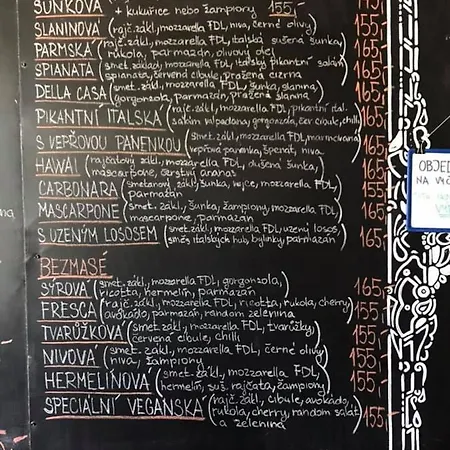 ŠUNKOVÁ + kukuřice nebo žampiony) 155,-
SLANINOVÁ (rajč. zákl., mozzarella FDL, niva, černé olivy) 155,-
PARMSKÁ (rajč. zákl., mozzarella FDL, italská sušená šunka, 165,-
rukola, parmazán, olivový olej)
SPIANATA (smet. základ, mozzarella FDL, italský pikantní salám 165,-
spianata, červená cibule, pražená cizrna)
DELLA CASA (smet. zákl., mozzarella FDL, šunka, slanina, 165,-
gorgonzola, parmazán, pražená slanina)
PIKANTNÍ ITALSKÁ (rajč. zákl., mozzarella FDL, pikantní ital. 165,-
salám, gorgonzola, čer. cibule, chilli)
S VEPŘOVOU PANENKOU (smet. zákl., mozzarella FDL, marinovaná 165,-
vepřová panenka, špenát, niva)
HAWAI (rajčatový zákl., mozzarella FDL, dušená šunka, 165,-
máscarpone, čerstvý ananas)
CARBONARA (smetanový zákl., šunka, vejce, mozzarella FDL, 155,-
parmazán)
MASCARPONE (smet. zákl., šunka, žampiony, mozzarella FDL, 165,-
mascarpone, parmazán)
S UZENÝM LOSOSEM (smet. zákl., mozzarella FDL, uzený losos, 165,-
směs italských hub, bylinky, parmazán)
BEZMASÉ
SÝROVÁ (smet. zákl., mozzarella FDL, gorgonzola, 165,-
ricotta, hermelín, parmazán)
FRESCA (rajč. zákl., mozzarella FDL, ricotta, rukola, cherry, 155,-
avokádo, parmazán, random zelenina)
TVARŮŽKOVÁ (smet. zákl., mozzarella FDL, tvarůžky, 155,-
červená cibule, chilli)
NIVOVÁ (smet. zákl., mozzarella FDL, černé olivy, 155,-
niva, žampiony)
HERMELÍNOVÁ (smet. zákl., mozzarella FDL, 155,-
hermelín, suš. rajčata, žampiony)
SPECIÁLNÍ VEGANSKÁ (rajč. zákl., cibule, avokádo, 155,-
rukola, cherry, random salát
a zelenina)
OBJED
NA VÝČ